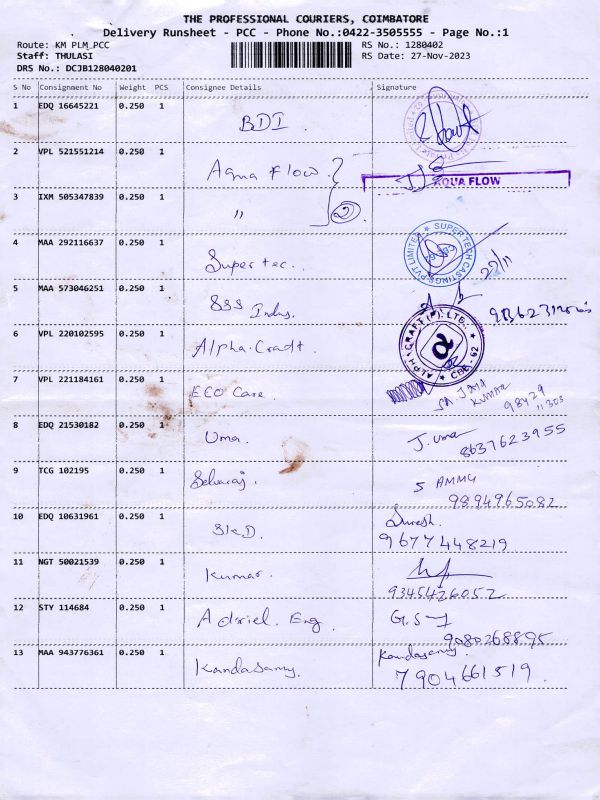 THE PROFESSIONAL COURIERS, COIMBATORE
Delivery Runsheet - PCC - Phone No.:0422-3505555 - Page No.:1
Route: KM PLM_PCC RS No.: 1280402
Staff: THULASI RS Date: 27-Nov-2023
DRS No.: DCJB128040201
S No Consignment No Weight PCS Consignee Details Signature
1 EDQ 16645221 0.250 1 BDI
2 VPL 521551214 0.250 1 Aqua Flow. AQUA FLOW
3 IXM 505347839 0.250 1 " 2
4 MAA 292116637 0.250 1 Super tec. SUPER TECH CASTINGS PVT LIMITED 27/11
5 MAA 573046251 0.250 1 SSS Indus.
6 VPL 220102595 0.250 1 Alpha.Cradt ALPHA CRAFT (P) LTD. CBE-62
7 VPL 221184161 0.250 1 ECO Care. KUMAR 98429 11303
8 EDQ 21530182 0.250 1 Uma. J. uma 8637623955
9 TCG 102195 0.250 1 Selvaraj. S AMMU 9894965082
10 EDQ 10631961 0.250 1 SKD. Suresh. 9677448219
11 NGT 50021539 0.250 1 Kumar. 9345426052
12 STY 114684 0.250 1 Adriel. Eng 9080268895
13 MAA 943776361 0.250 1 Kandasamy. Kandasamy. 7904661519